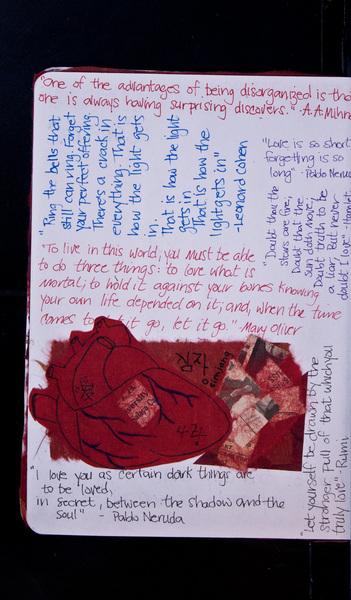 "One of the advantages of being disorganized is tha
one is always having surprising discovers." - A.A. Milne
"Ring the bells that
still can ring Forget
your perfect offering
There's a crack in
everything. That is
how the light gets
in
That is how the light
gets in
That is how the
light gets in"
- Leonard Cohen
"Love is so short
forgetting is so
long" - Pablo Neruda
"Doubt thou the
stars are fire,
Doubt that the
sun doth move.
Doubt truth to be
a liar, But never
doubt I love" - Hamlet
"To live in this world, you must be able
to do three things: to love what is
mortal; to hold it against your bones knowing
your own life depended on it; and, when the time
comes to let it go, let it go." Mary Oliver
심장
simjang
"Let yourself be drawn by the
stronger pull of that which you
truly love" - Rumi
"I love you as certain dark things are
to be loved,
in secret, between the shadow and the
soul" - Pablo Neruda